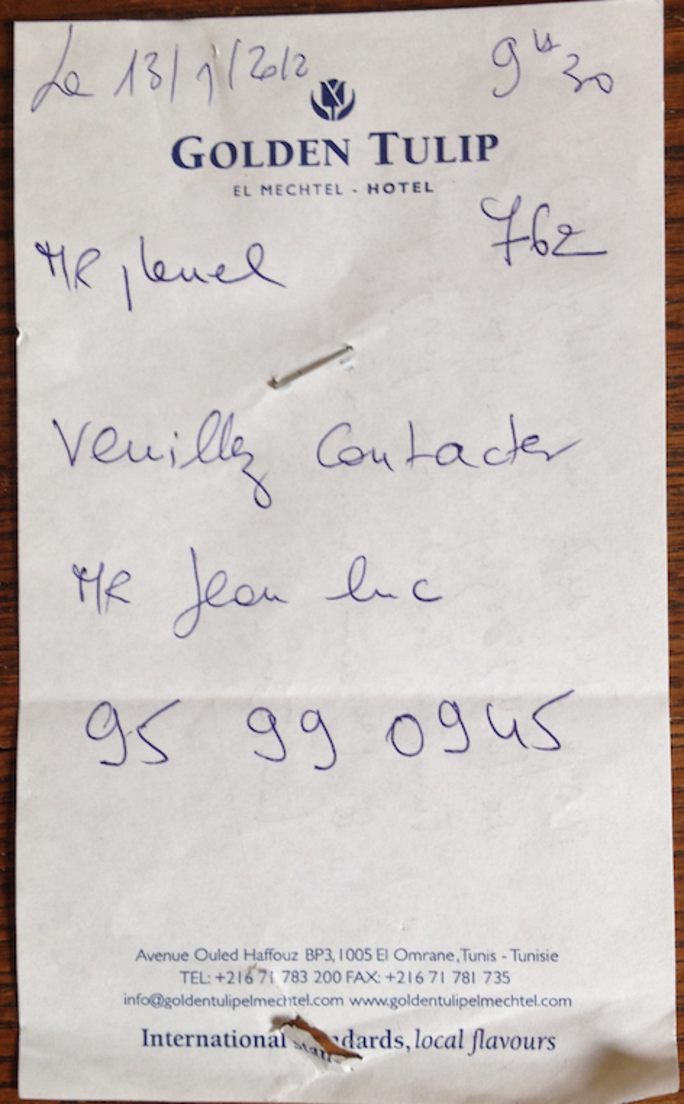 Le 13/1/2012 9H30
GOLDEN TULIP
EL MECHTEL - HOTEL
MR 762
Veuillez Contacter
MR Jean luc
95 99 0945
Avenue Ouled Haffouz BP3, 1005 El Omrane, Tunis - Tunisie
TEL: +216 71 783 200 FAX: +216 71 781 735
info@goldentulipelmechtel.com www.goldentulipelmechtel.com
International standards, local flavours